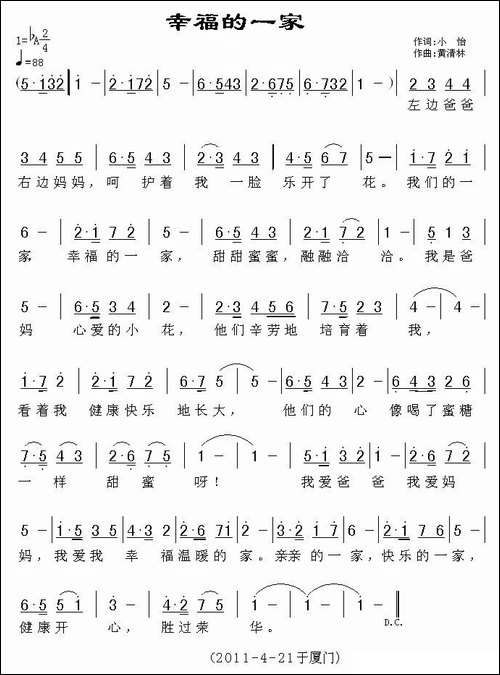 幸福的一家
1=♭A 2/4
作词:小 怡
♩=88
作曲:黄清林
(5·i32 | i - | 2·172 | 5 - | 6·6543 | 2·675 | 6·732 | 1 - ) | 2 3 4 4 |
左边爸爸
3 4 5 5 | 6·5 4 3 | 2·3 4 3 | 4 5 6 7 | 5 - | i·7 2 i |
右边妈妈,呵 护着 我 一脸 乐开了 花。我们的一
6 - | 2·i 7 2 | i - | 6·5 4 3 | 2·1 7 2 | 1 - | 5 1 3 |
家 幸福的一 家,甜甜蜜蜜,融融洽 洽。我是爸
5 - | 6·5 3 4 | 2 - | 2·3 4 5 6 | 7·6 7 5 | 4 - | 4 - |
妈 心爱的小 花, 他们辛劳地 培育着 我,
i·7 2 | 6·i 7 2 | 2·6 7 6 | 5 - | 6·5 4 3 | 5 - 2 | 6 4 3 2 6 |
看着我 健康快乐 地长大, 他们的 心 像喝了蜜糖
7·5 4 3 | 2·3 7 5 | 1 - | 1 - | 5·i 3 2 | i - 2 | 6·7 2 3 |
一 样 甜 蜜 呀! 我爱爸 爸 我爱妈
5 - | i·5 3 5 | 4·3 2 | 2·6 7i | 5 - | i·7 6 5 | 4·6 7 6 | 5 - |
妈,我爱我 幸 福温暖的 家。亲亲的一家,快乐的一家,
6·5 5 i | 3 - | 4·2 7 6 | 1 - | 1 - ‖
健康开 心, 胜过荣 华。 D.C.
(2011-4-21于厦门)